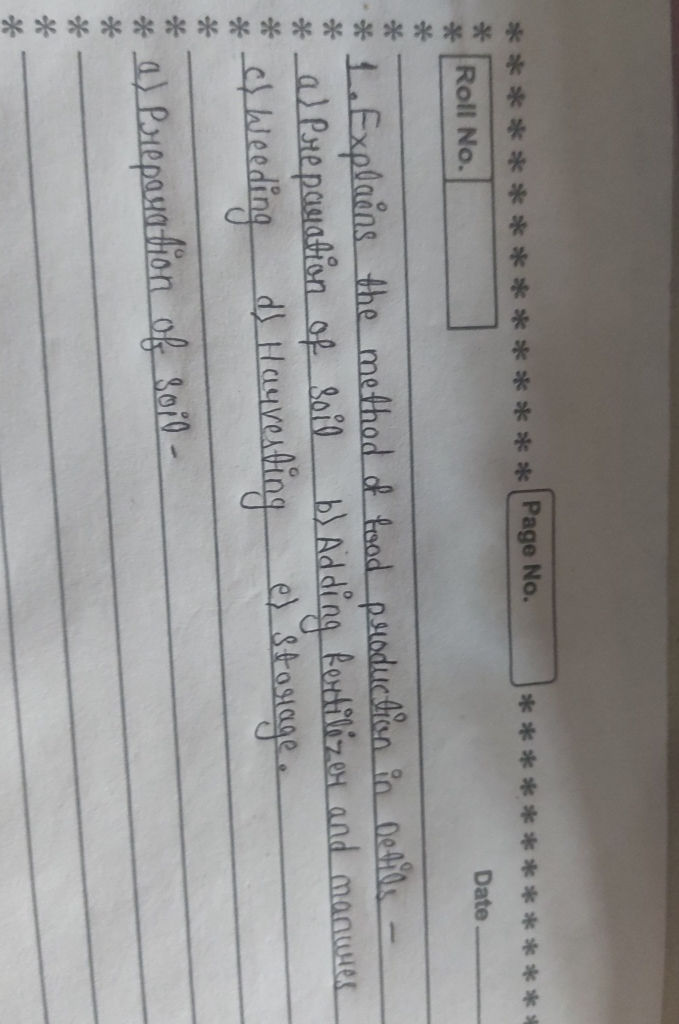 Page No.
Date
Roll No.
1. Explains the method of food production in Detils -
a) Preparation of Soil b) Adding fertilizer and manures
c) Weeding d) Harvesting e) Storage.
a) Preparation of Soil -